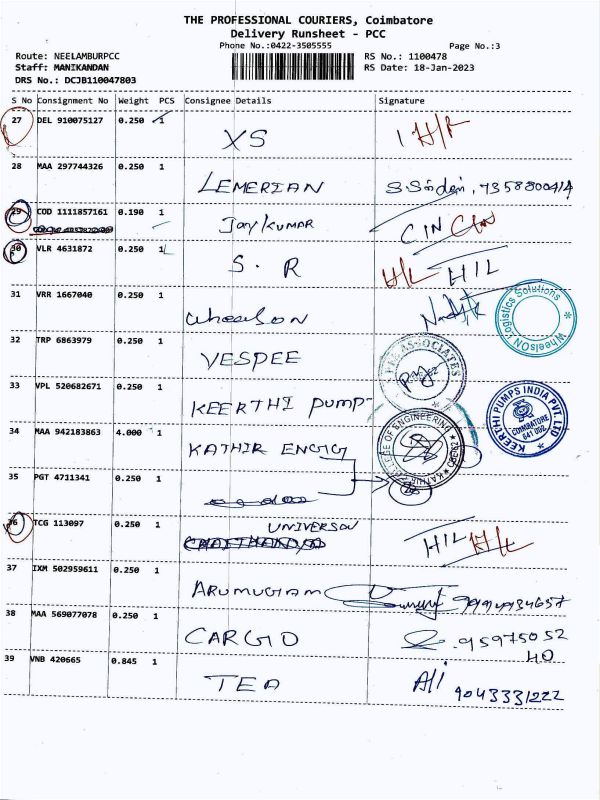 THE PROFESSIONAL COURIERS, Coimbatore
Delivery Runsheet - PCC
Phone No.:0422-3505555 Page No.:3
Route: NEELAMBURPCC RS No.: 1100478
Staff: MANIKANDAN RS Date: 18-Jan-2023
DRS No.: DCJB110047803
S No Consignment No Weight PCS Consignee Details Signature
27 DEL 910075127 0.250 1
XS H/L
28 MAA 297744326 0.250 1
LEMERIAN
29 COD 1111857161 0.190 1
Jay KUMAR CIN CIN
30 VLR 4631872 0.250 1
S. R H/L H/L
31 VRR 1667040 0.250 1
WheelSON WheelsON Logistics Solutions
32 TRP 6863979 0.250 1
VESPEE ASSOCIATES
33 VPL 520682671 0.250 1
KEERTHI PUMP KEERTHI PUMPS INDIA PVT. LTD COIMBATORE 641 062
34 MAA 942183863 4.000 1
KATHIR ENGG COLLEGE OF ENGINEERING
35 PGT 4711341 0.250 1
36 TCG 113097 0.250 1
UNIVERSON
H/L H/L
37 IXM 502959611 0.250 1
ARUMUGAM
38 MAA 569077078 0.250 1
CARGO 95975052
40
39 VNB 420665 0.845 1
TEA Ali 9043331222